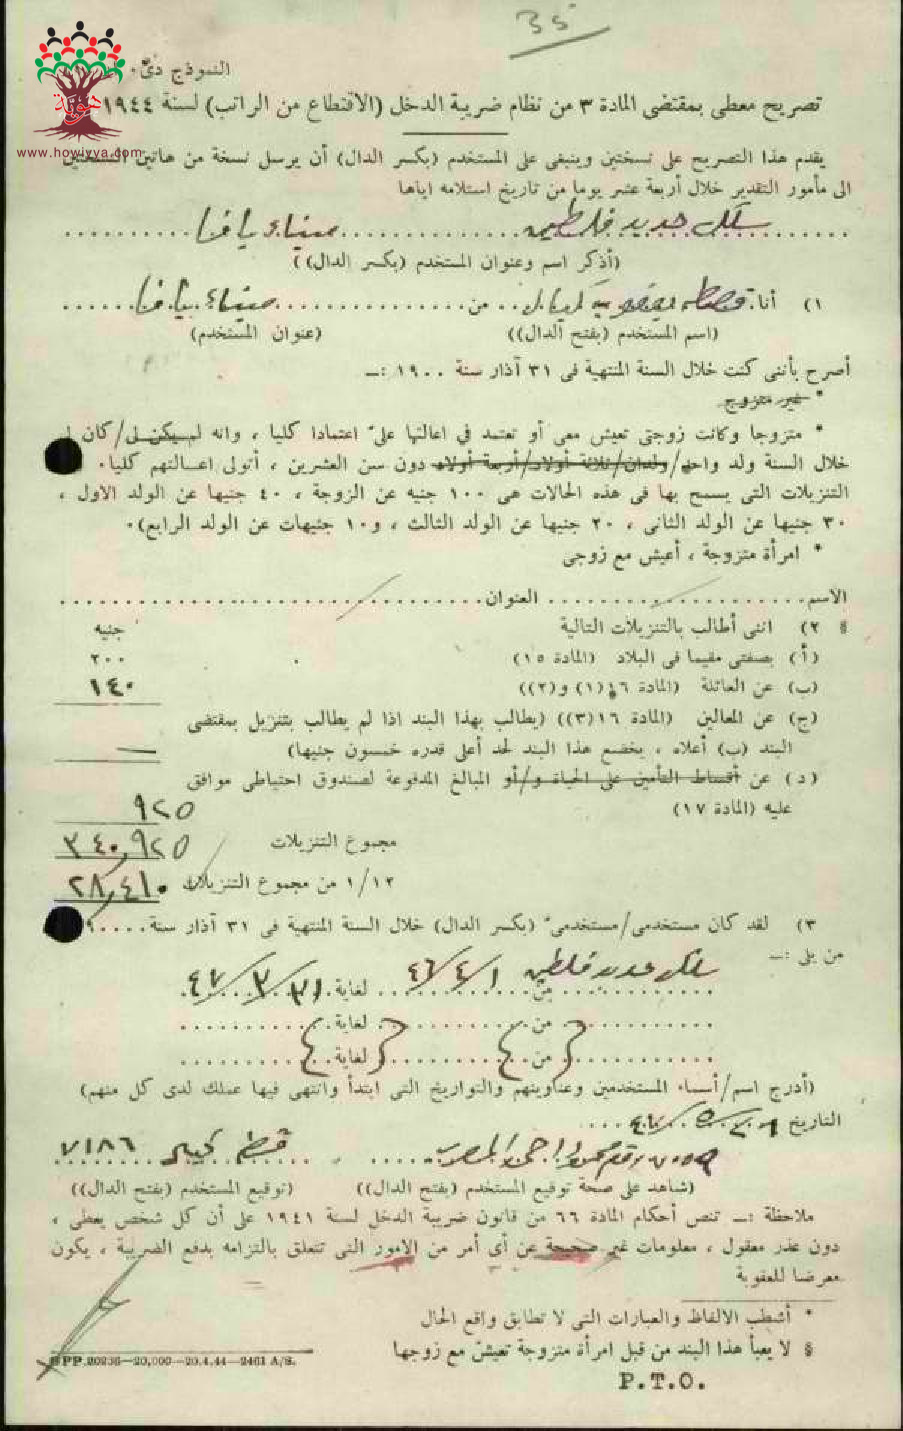 35
هوية
www.howiyya.com
النموذج دى٠
تصريح معطى بمقتضى المادة ٣ من نظام ضريبة الدخل (الاقتطاع من الراتب) لسنة ١٩٤٤
يقدم هذا التصريح على نسختين وينبغى على المستخدم (بكسر الدال) أن يرسل نسخة من هاتين النسختين
الى مأمور التقدير خلال أربعة عشر يوما من تاريخ استلامه اياها
سكك حديد فلسطين ميناء يافا
(أذكر اسم وعنوان المستخدم (بكسر الدال))
١) أنا من ميناء يافا
(اسم المستخدم (بفتح الدال)) (عنوان المستخدم)
أصرح بأننى كنت خلال السنة المنتهية فى ٣١ آذار سنة ١٩٠٠ :ـ
* غير متزوج
* متزوجا وكانت زوجتى تعيش معى أو تعتمد في اعالتها علىّ اعتمادا كليا ، وانه لم يكن لى/كان لى
خلال السنة ولد واحد/ولدان/ثلاثة أولاد/أربعة أولاد دون سن العشرين ، أتولى اعالتهم كليا٠
التنزيلات التى يسمح بها فى هذه الحالات هى ١٠٠ جنيه عن الزوجة ، ٤٠ جنيها عن الولد الاول ،
٣٠ جنيها عن الولد الثانى ، ٢٠ جنيها عن الولد الثالث ، و١٠ جنيهات عن الولد الرابع)٠
* امرأة متزوجة ، أعيش مع زوجى
الاسم العنوان
§ ٢) اننى أطالب بالتنزيلات التالية جنيه
(أ) بصفتى مقيما فى البلاد (المادة ١٥) ٢٠٠
(ب) عن العائلة (المادة ١٦(١) و(٢)) ١٤٠
(ج) عن المعالين (المادة ١٦(٣)) (يطالب بهذا البند اذا لم يطالب بتنزيل بمقتضى
البند (ب) أعلاه ، يخضع هذا البند لحد أعلى قدره خمسون جنيها) —
(د) عن أقساط التأمين على الحياة و/أو المبالغ المدفوعة لصندوق احتياطى موافق
عليه (المادة ١٧) ٩٢٥
مجموع التنزيلات ٣٤٠,٩٢٥
١/١٢ من مجموع التنزيلات ٢٨,٤١٠
٣) لقد كان مستخدمى/مستخدمىّ (بكسر الدال) خلال السنة المنتهية فى ٣١ آذار سنة
من يلى :ـ
سكك حديد فلسطين من ٤٦/٤/١ لغاية ٤٧/٣/٣١
من لغاية
من لغاية
(أدرج اسم/أسماء المستخدمين وعناوينهم والتواريخ التى ابتدأ وانتهى فيها عملك لدى كل منهم)
التاريخ
٧١٨٦
(شاهد على صحة توقيع المستخدم (بفتح الدال)) (توقيع المستخدم (بفتح الدال))
ملاحظة :ـ تنص أحكام المادة ٦٦ من قانون ضريبة الدخل لسنة ١٩٤١ على أن كل شخص يعطى ،
دون عذر معقول ، معلومات غير صحيحة عن أي أمر من الامور التى تتعلق بالتزامه بدفع الضريبة ، يكون
معرضا للعقوبة
* أشطب الالفاظ والعبارات التى لا تطابق واقع الحال
§ لا يعبأ هذا البند من قبل امرأة متزوجة تعيش مع زوجها
GPP.20236—20,000—20.4.44—2461 A/S.
P.T.O.